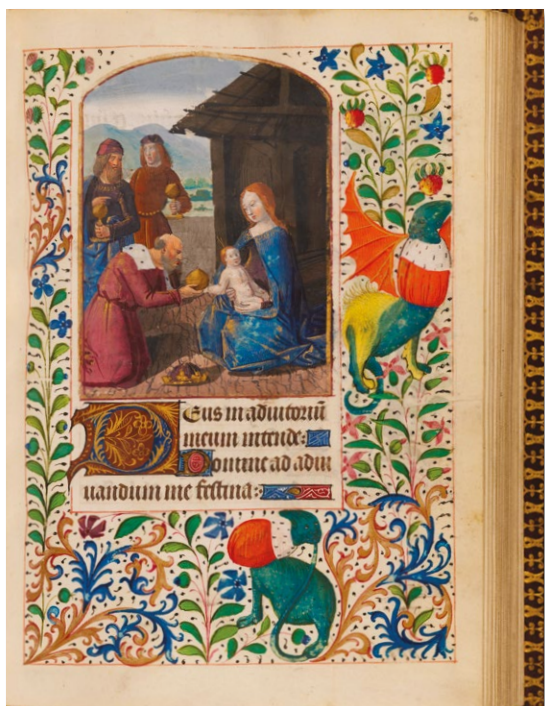 Deus in adiutoriū
meum intende:
Domine ad adiu
uandum me festina: